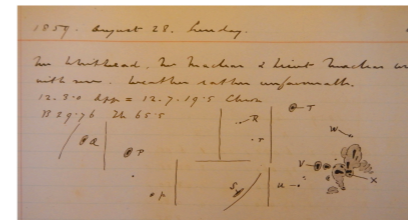 1859. August 28. Sunday.
Mr Whithead, Mr Machar & Lieut Machar
with me. Weather rather unfavourable.
12. 3. 0 App = 12. 7. 19.5 Chron
B 29.76 Th 65.5
R
T
W
Q
P
V
X
S
u